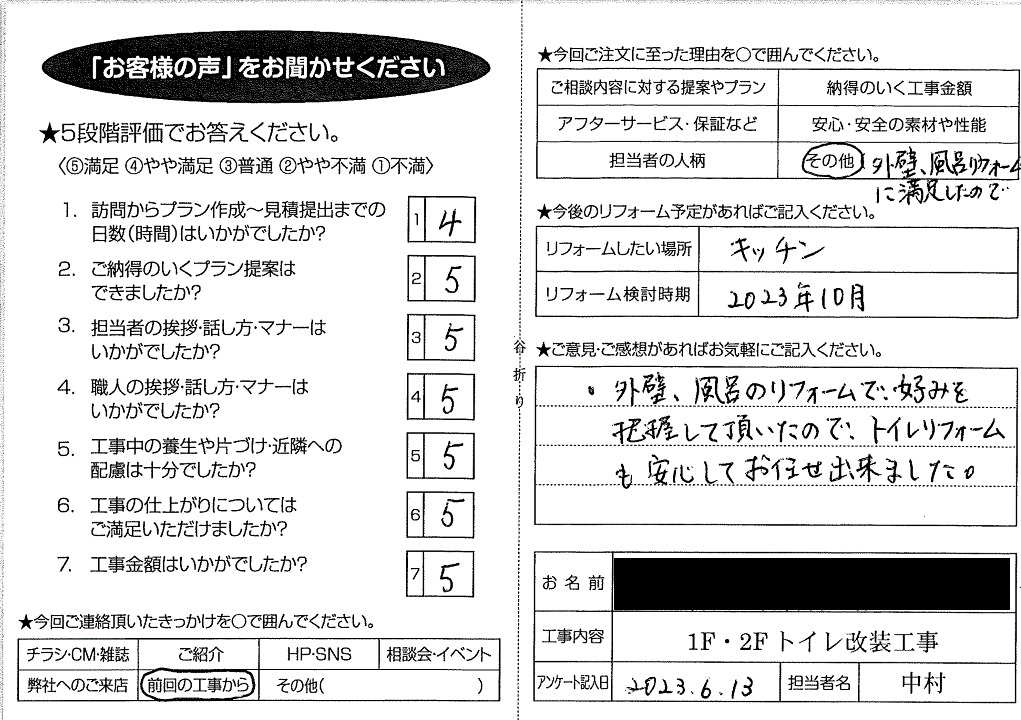 「お客様の声」をお聞かせください
★5段階評価でお答えください。
〈⑤満足 ④やや満足 ③普通 ②やや不満 ①不満〉
1. 訪問からプラン作成~見積提出までの
日数(時間)はいかがでしたか?
1 4
2. ご納得のいくプラン提案は
できましたか?
2 5
3. 担当者の挨拶・話し方・マナーは
いかがでしたか?
3 5
4. 職人の挨拶・話し方・マナーは
いかがでしたか?
4 5
5. 工事中の養生や片づけ・近隣への
配慮は十分でしたか?
5 5
6. 工事の仕上がりについては
ご満足いただけましたか?
6 5
7. 工事金額はいかがでしたか?
7 5
★今回ご連絡頂いたきっかけを○で囲んでください。
チラシ・CM・雑誌 ご紹介 HP・SNS 相談会・イベント
弊社へのご来店 前回の工事から その他( )
谷折り
★今回ご注文に至った理由を○で囲んでください。
ご相談内容に対する提案やプラン 納得のいく工事金額
アフターサービス・保証など 安心・安全の素材や性能
担当者の人柄 その他( 外壁、風呂リフォーム
に満足したので
★今後のリフォーム予定があればご記入ください。
リフォームしたい場所 キッチン
リフォーム検討時期 2023年10月
★ご意見・ご感想があればお気軽にご記入ください。
・外壁、風呂のリフォームで、好みを
把握して頂いたので、トイレリフォーム
も安心してお任せ出来ました。
お名前
工事内容 1F・2Fトイレ改装工事
アンケート記入日 2023.6.13 担当者名 中村